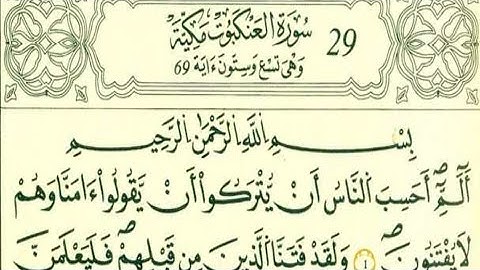 29 سُورَةُ الْعَنكَبُوتِ مَكِّيَّة
وَهْيَ تِسْعٌ وَسِتُّونَ ءَايَة 69
بِسْمِ اللَّهِ الرَّحْمَٰنِ الرَّحِيمِ
أَلَٓمِّٓۖ أَحَسِبَ اَ۬لنَّاسُ أَنْ يُّتْرَكُوٓاْ أَنْ يَّقُولُوٓاْ ءَامَنَّا وَهُمْ
لَا يُفْتَنُونَۖ 1 وَلَقَدْ فَتَنَّا اَ۬لذِينَ مِن قَبْلِهِمْۖ فَلَيَعْلَمَنَّ